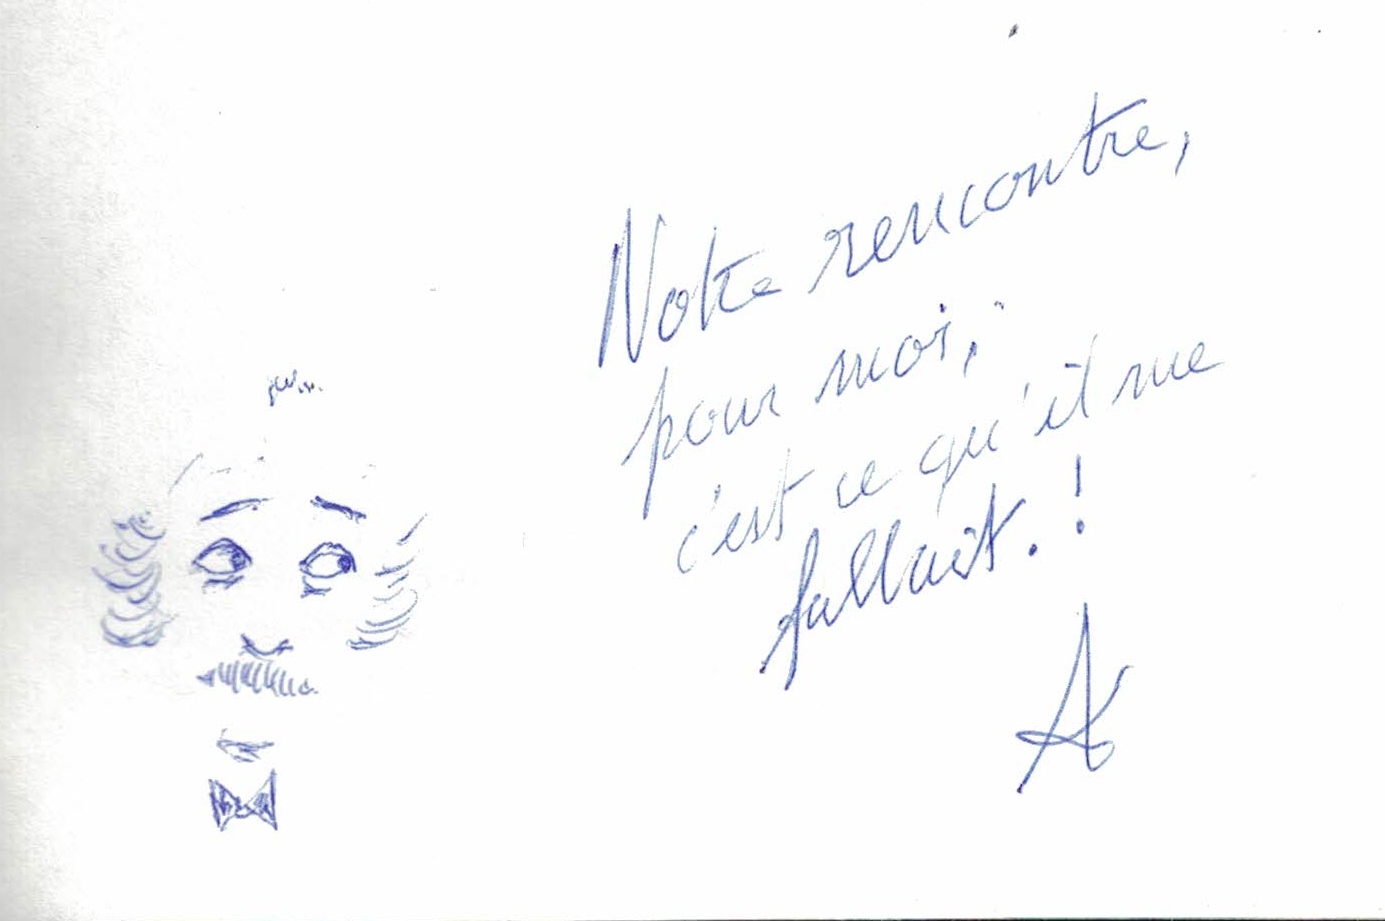 Notre rencontre,
pour moi,
c'est ce qu'il me
fallait. !
A